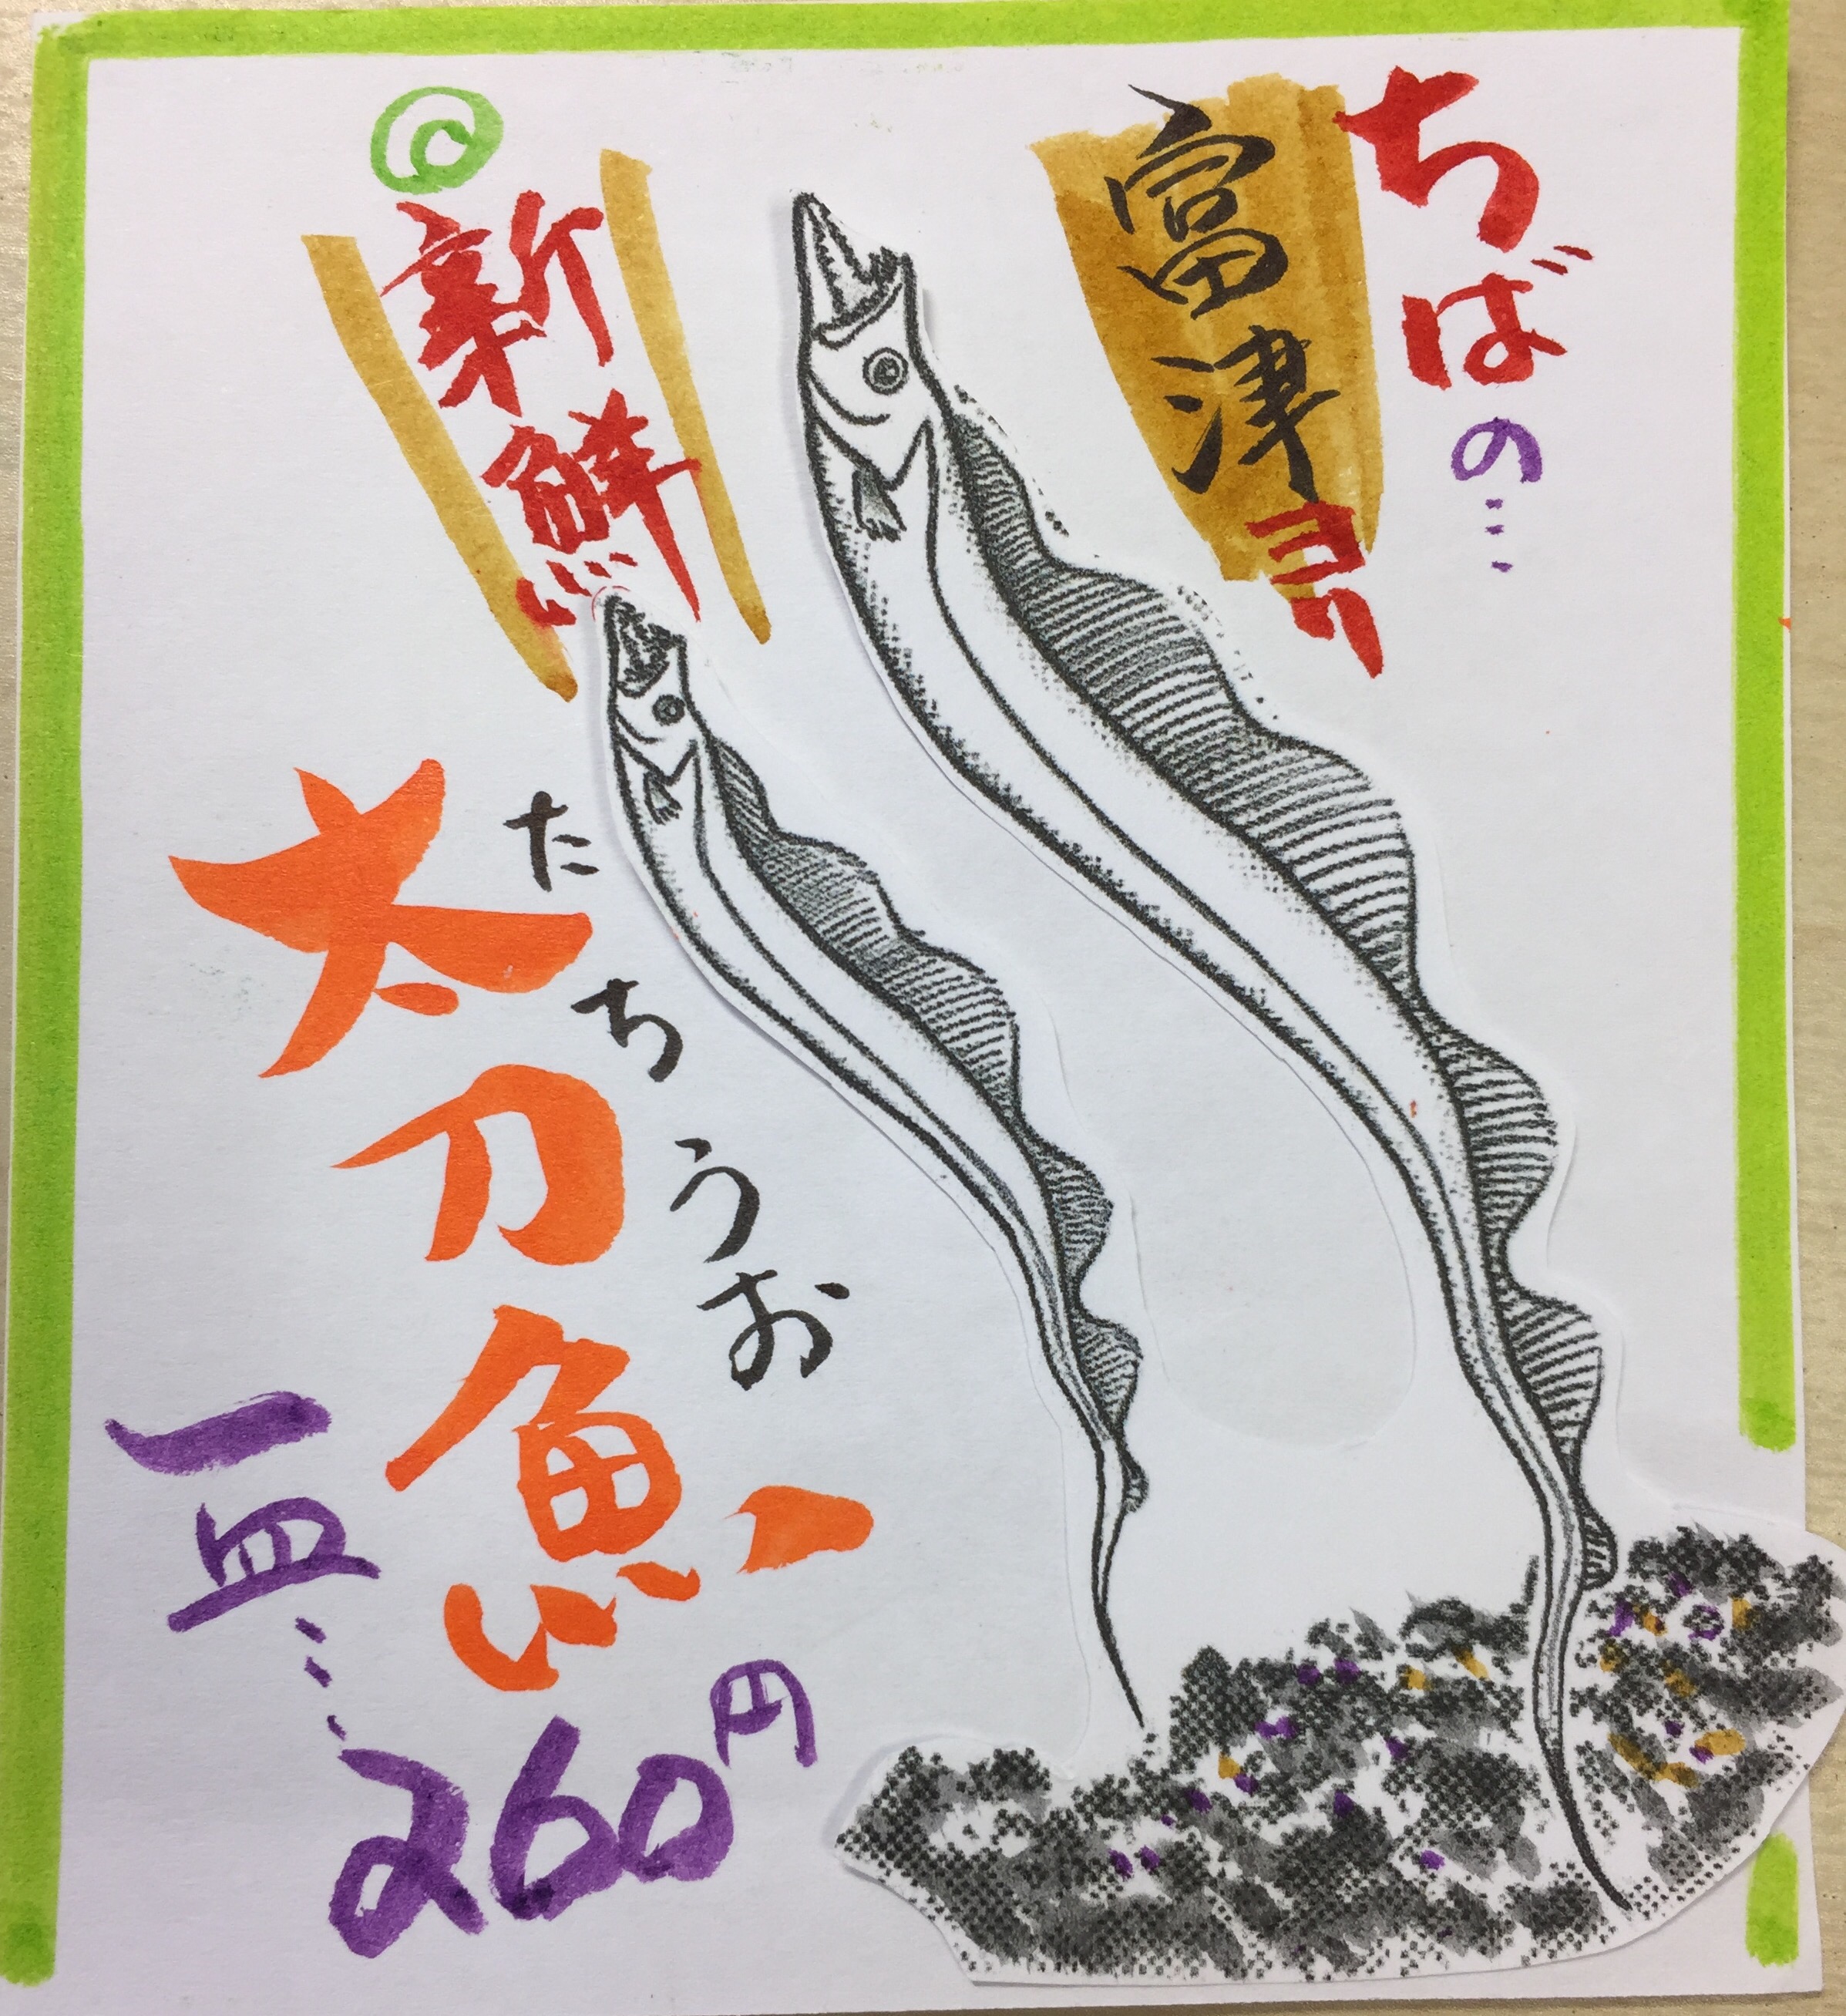 ちばの…
富津
◎新鮮
たちうお
太刀魚
一皿…260円